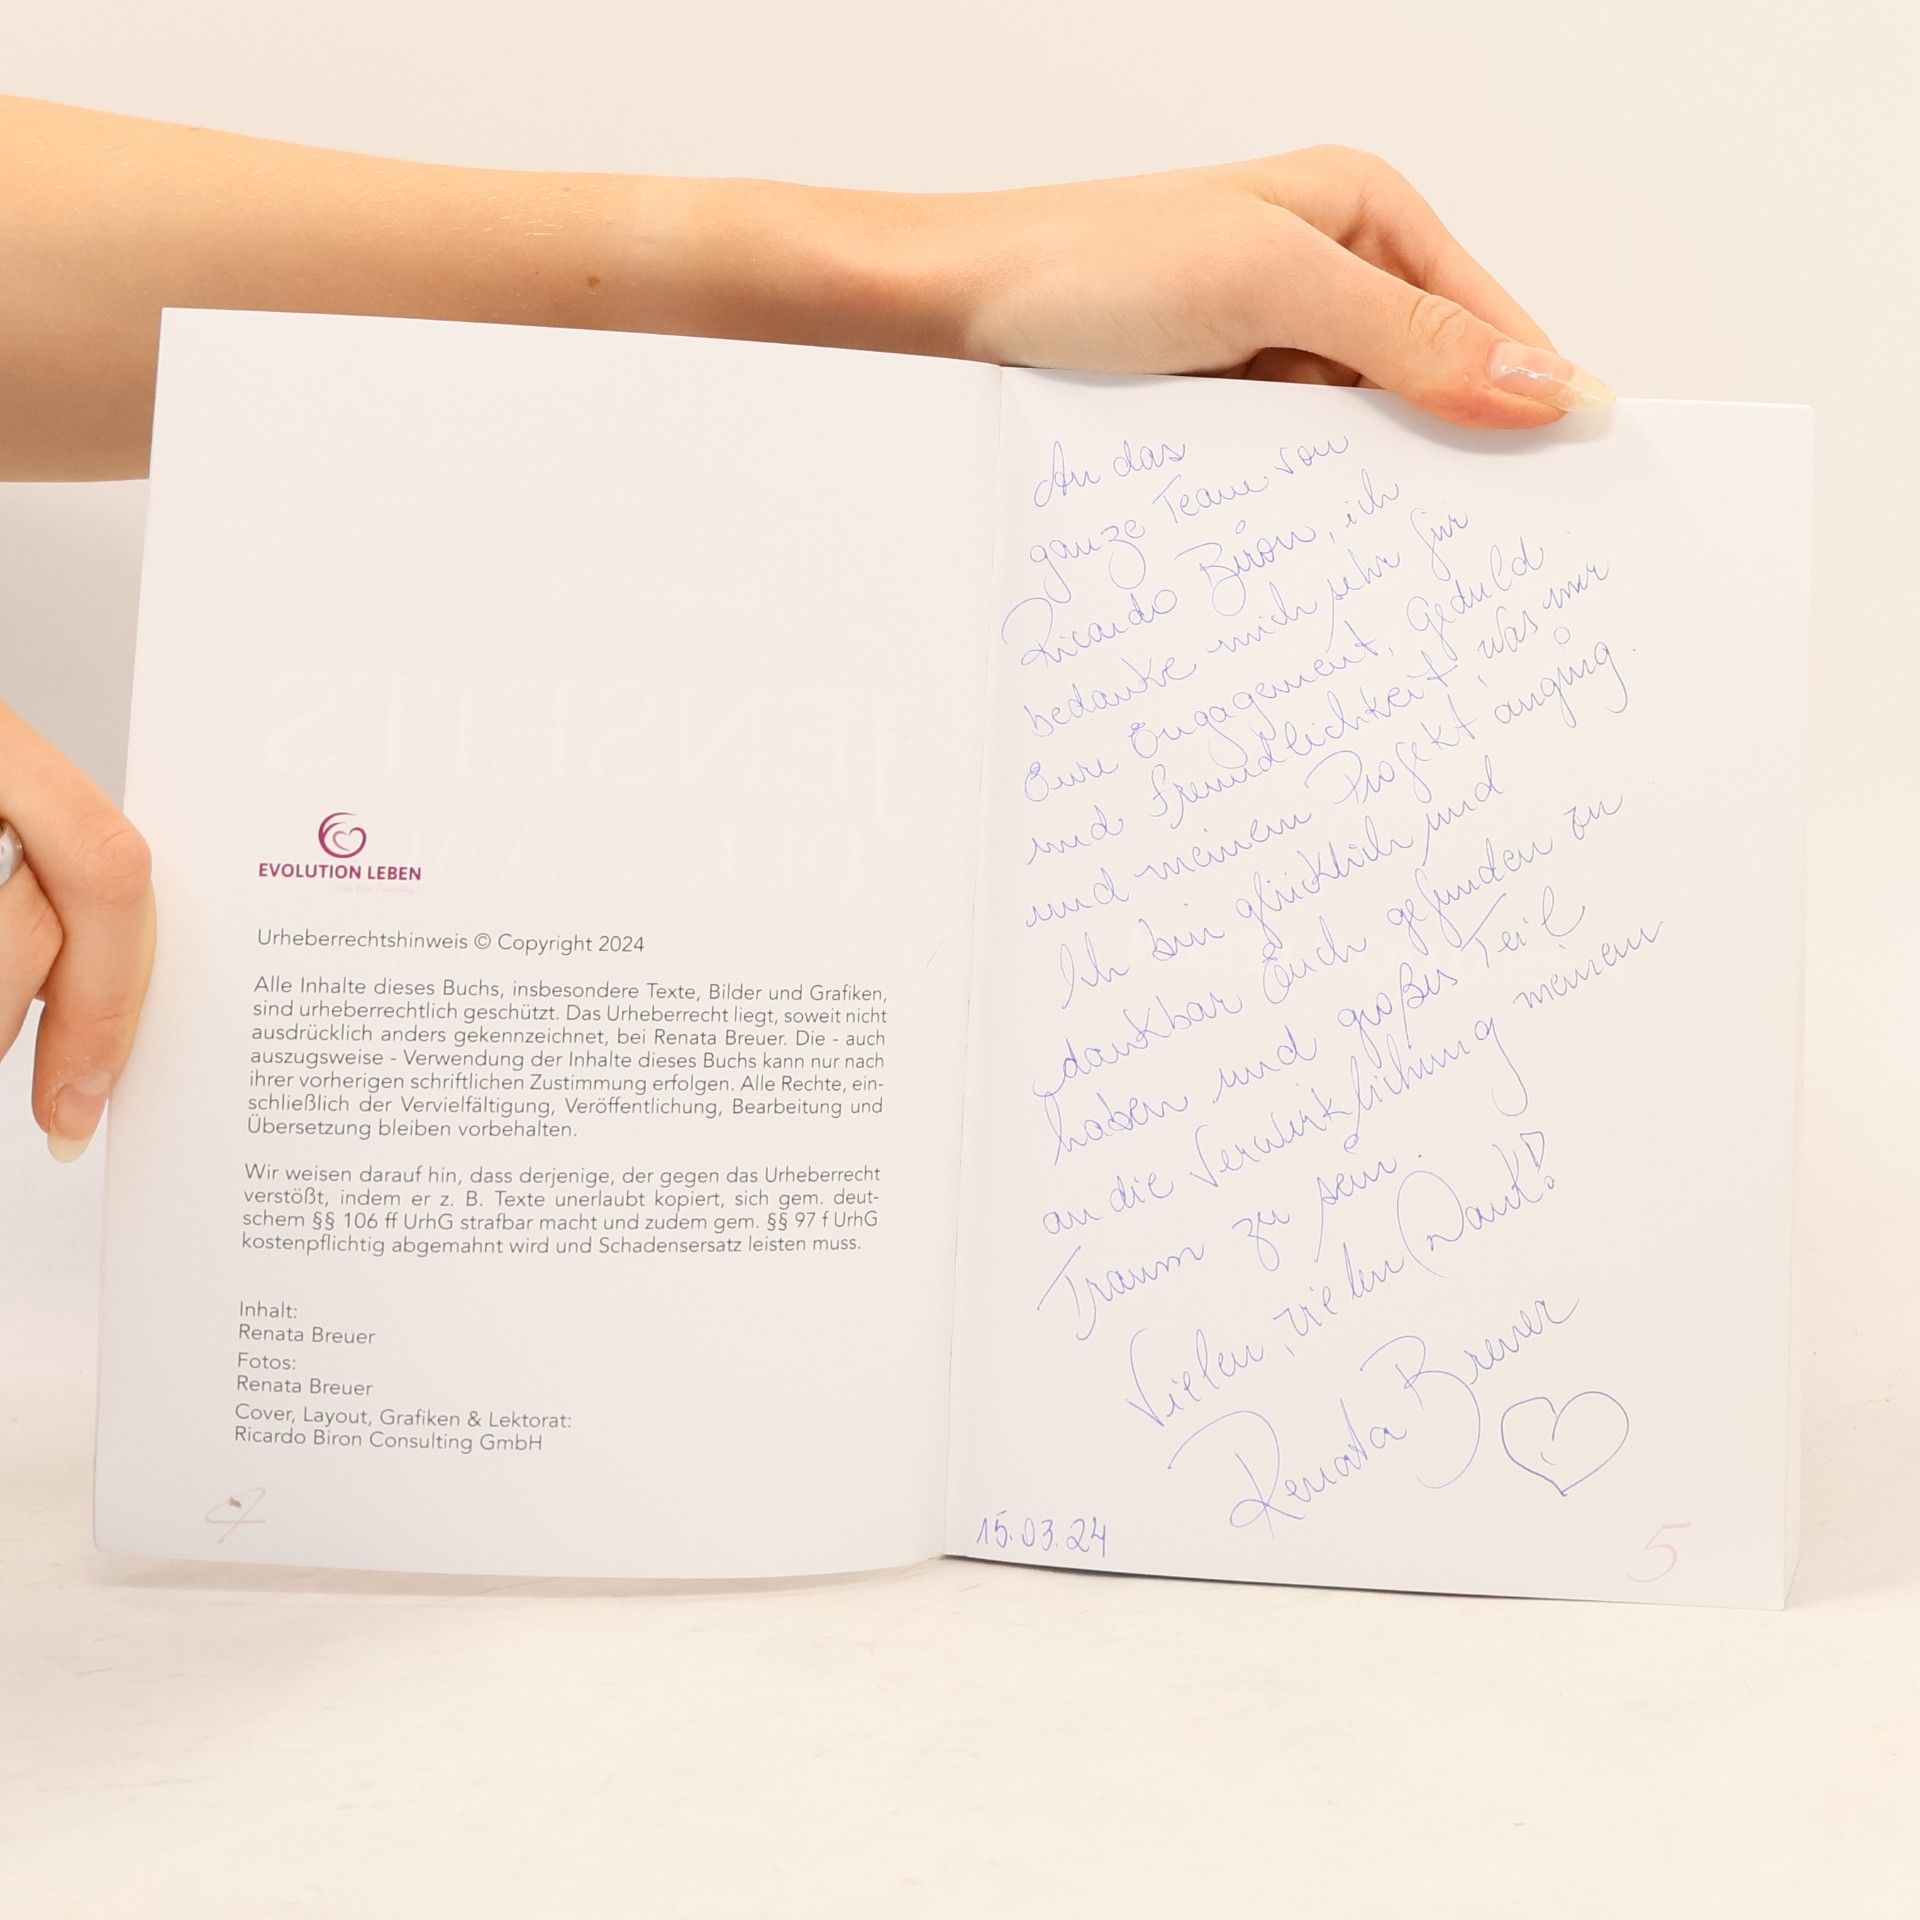 EVOLUTION LEBEN
Urheberrechtshinweis © Copyright 2024
Alle Inhalte dieses Buchs, insbesondere Texte, Bilder und Grafiken,
sind urheberrechtlich geschützt. Das Urheberrecht liegt, soweit nicht
ausdrücklich anders gekennzeichnet, bei Renata Breuer. Die - auch
auszugsweise - Verwendung der Inhalte dieses Buchs kann nur nach
ihrer vorherigen schriftlichen Zustimmung erfolgen. Alle Rechte, ein-
schließlich der Vervielfältigung, Veröffentlichung, Bearbeitung und
Übersetzung bleiben vorbehalten.
Wir weisen darauf hin, dass derjenige, der gegen das Urheberrecht
verstößt, indem er z. B. Texte unerlaubt kopiert, sich gem. deut-
schem §§ 106 ff UrhG strafbar macht und zudem gem. §§ 97 f UrhG
kostenpflichtig abgemahnt wird und Schadensersatz leisten muss.
Inhalt:
Renata Breuer
Fotos:
Renata Breuer
Cover, Layout, Grafiken & Lektorat:
Ricardo Biron Consulting GmbH
4
An das
ganze Team von
Ricardo Biron, ich
bedanke mich sehr für
Eure Engagement, Geduld
und Freundlichkeit, was mir
und meinem Projekt anging.
Ich bin glücklich und
dankbar Euch gefunden zu
haben und großes Teil
an die Verwirklichung meinem
Traum zu sein.
Vielen, vielen Dank!
Renata Breuer
15.03.24
5